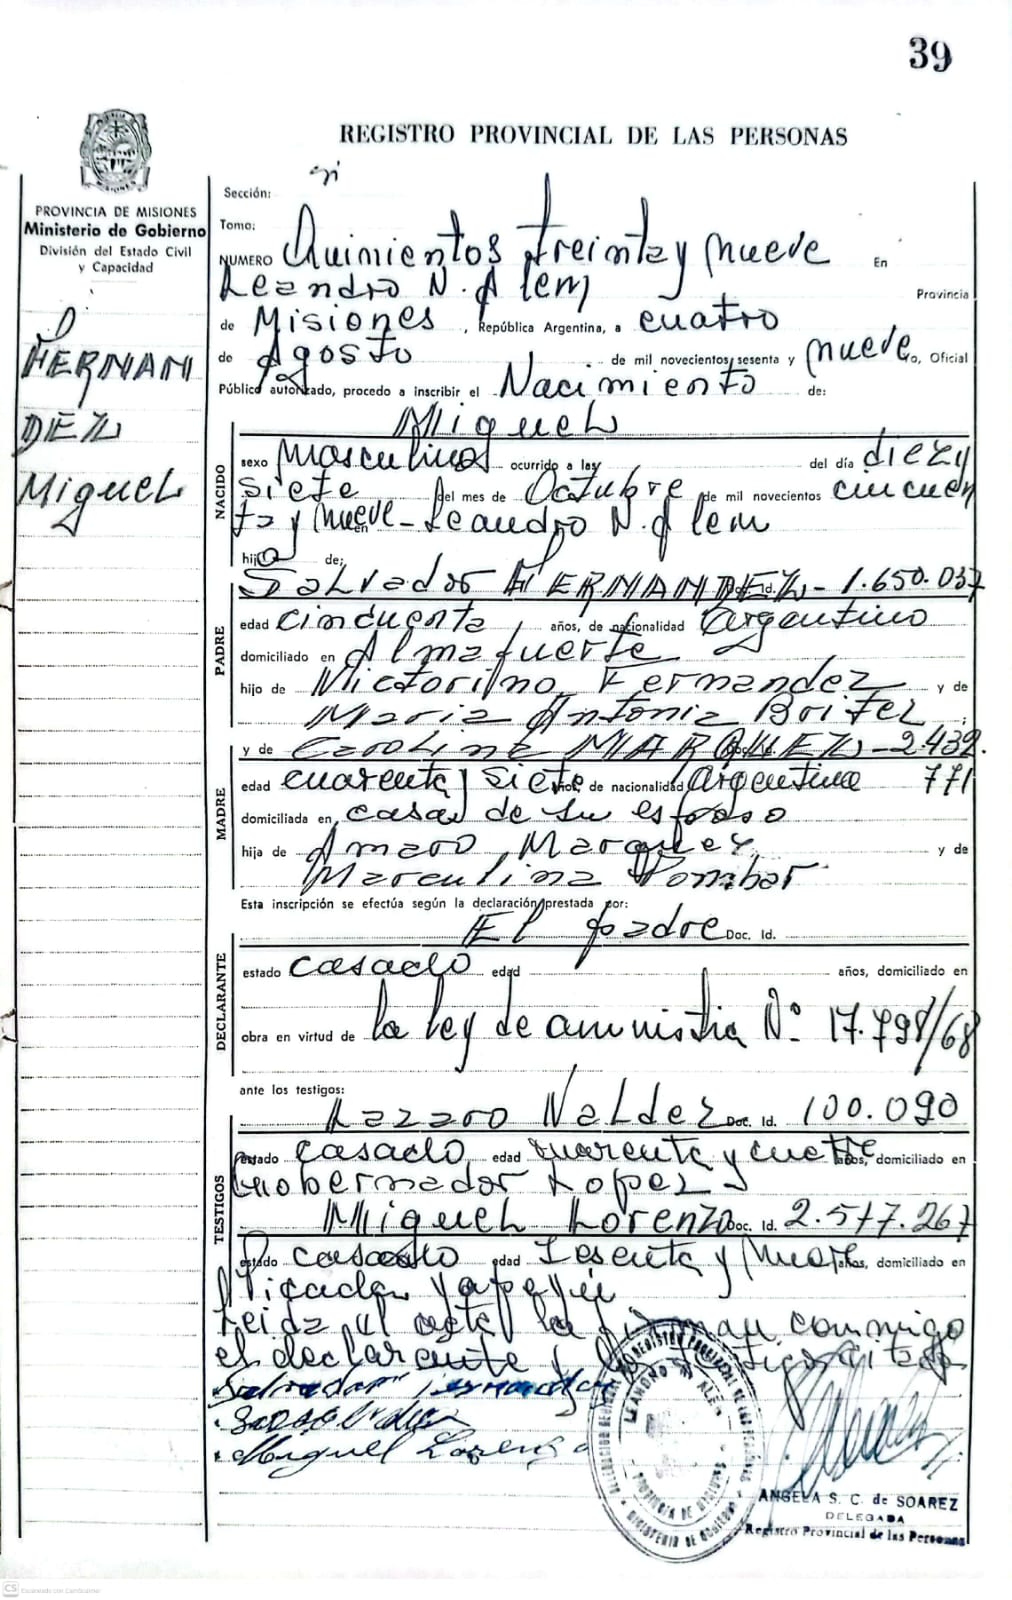 39
REGISTRO PROVINCIAL DE LAS PERSONAS
PROVINCIA DE MISIONES
Ministerio de Gobierno
División del Estado Civil
y Capacidad
HERNAN
DEZ
Miguel
Sección:
Tomo:
NUMERO Quinientos treinta y nueve En
Leandro N. Alem Provincia
de Misiones, República Argentina, a cuatro
de Agosto de mil novecientos sesenta y nueve, Oficial
Público autorizado, procedo a inscribir el Nacimiento de:
Miguel
NACIDO
sexo masculino ocurrido a las del día diez y
siete del mes de Octubre de mil novecientos cincuen
ta y nueve - Leandro N. Alem
hijo de:
Salvador HERNANDEZ - 1.650.037
PADRE
edad cincuenta años, de nacionalidad Argentino
domiciliado en Almafuerte
hijo de Victorino Fernandez y de
Maria Antonia Britez
y de Carolina MARQUEZ - 2.432.
MADRE
edad cuarenta y siete años, de nacionalidad argentina 771
domiciliada en casa de su esposo
hija de Amaro Marquez y de
Marculina
Esta inscripción se efectúa según la declaración prestada por:
El padre Doc. Id.
DECLARANTE
estado casado edad años, domiciliado en
obra en virtud de la ley de amnistia Nº 17.798/68
ante los testigos:
Lazaro Valdez Doc. Id. 100.090
TESTIGOS
estado casado edad cuarenta y cuatro años, domiciliado en
Gobernador Lopez
Miguel Lorenzo Doc. Id. 2.577.267
estado casado edad Sesenta y años, domiciliado en
Picada Yapeyú
Leida el acta la firman conmigo
el declarante y los testigos citados
Salvador
Miguel Lorenzo
REGISTRO PROVINCIAL DE LAS PERSONAS
LEANDRO N. ALEM
PROVINCIA DE MISIONES
MINISTERIO DE GOBIERNO
ANGELA S. C. de SOAREZ
DELEGADA
Registro Provincial de las Personas
CS Escaneado con CamScanner